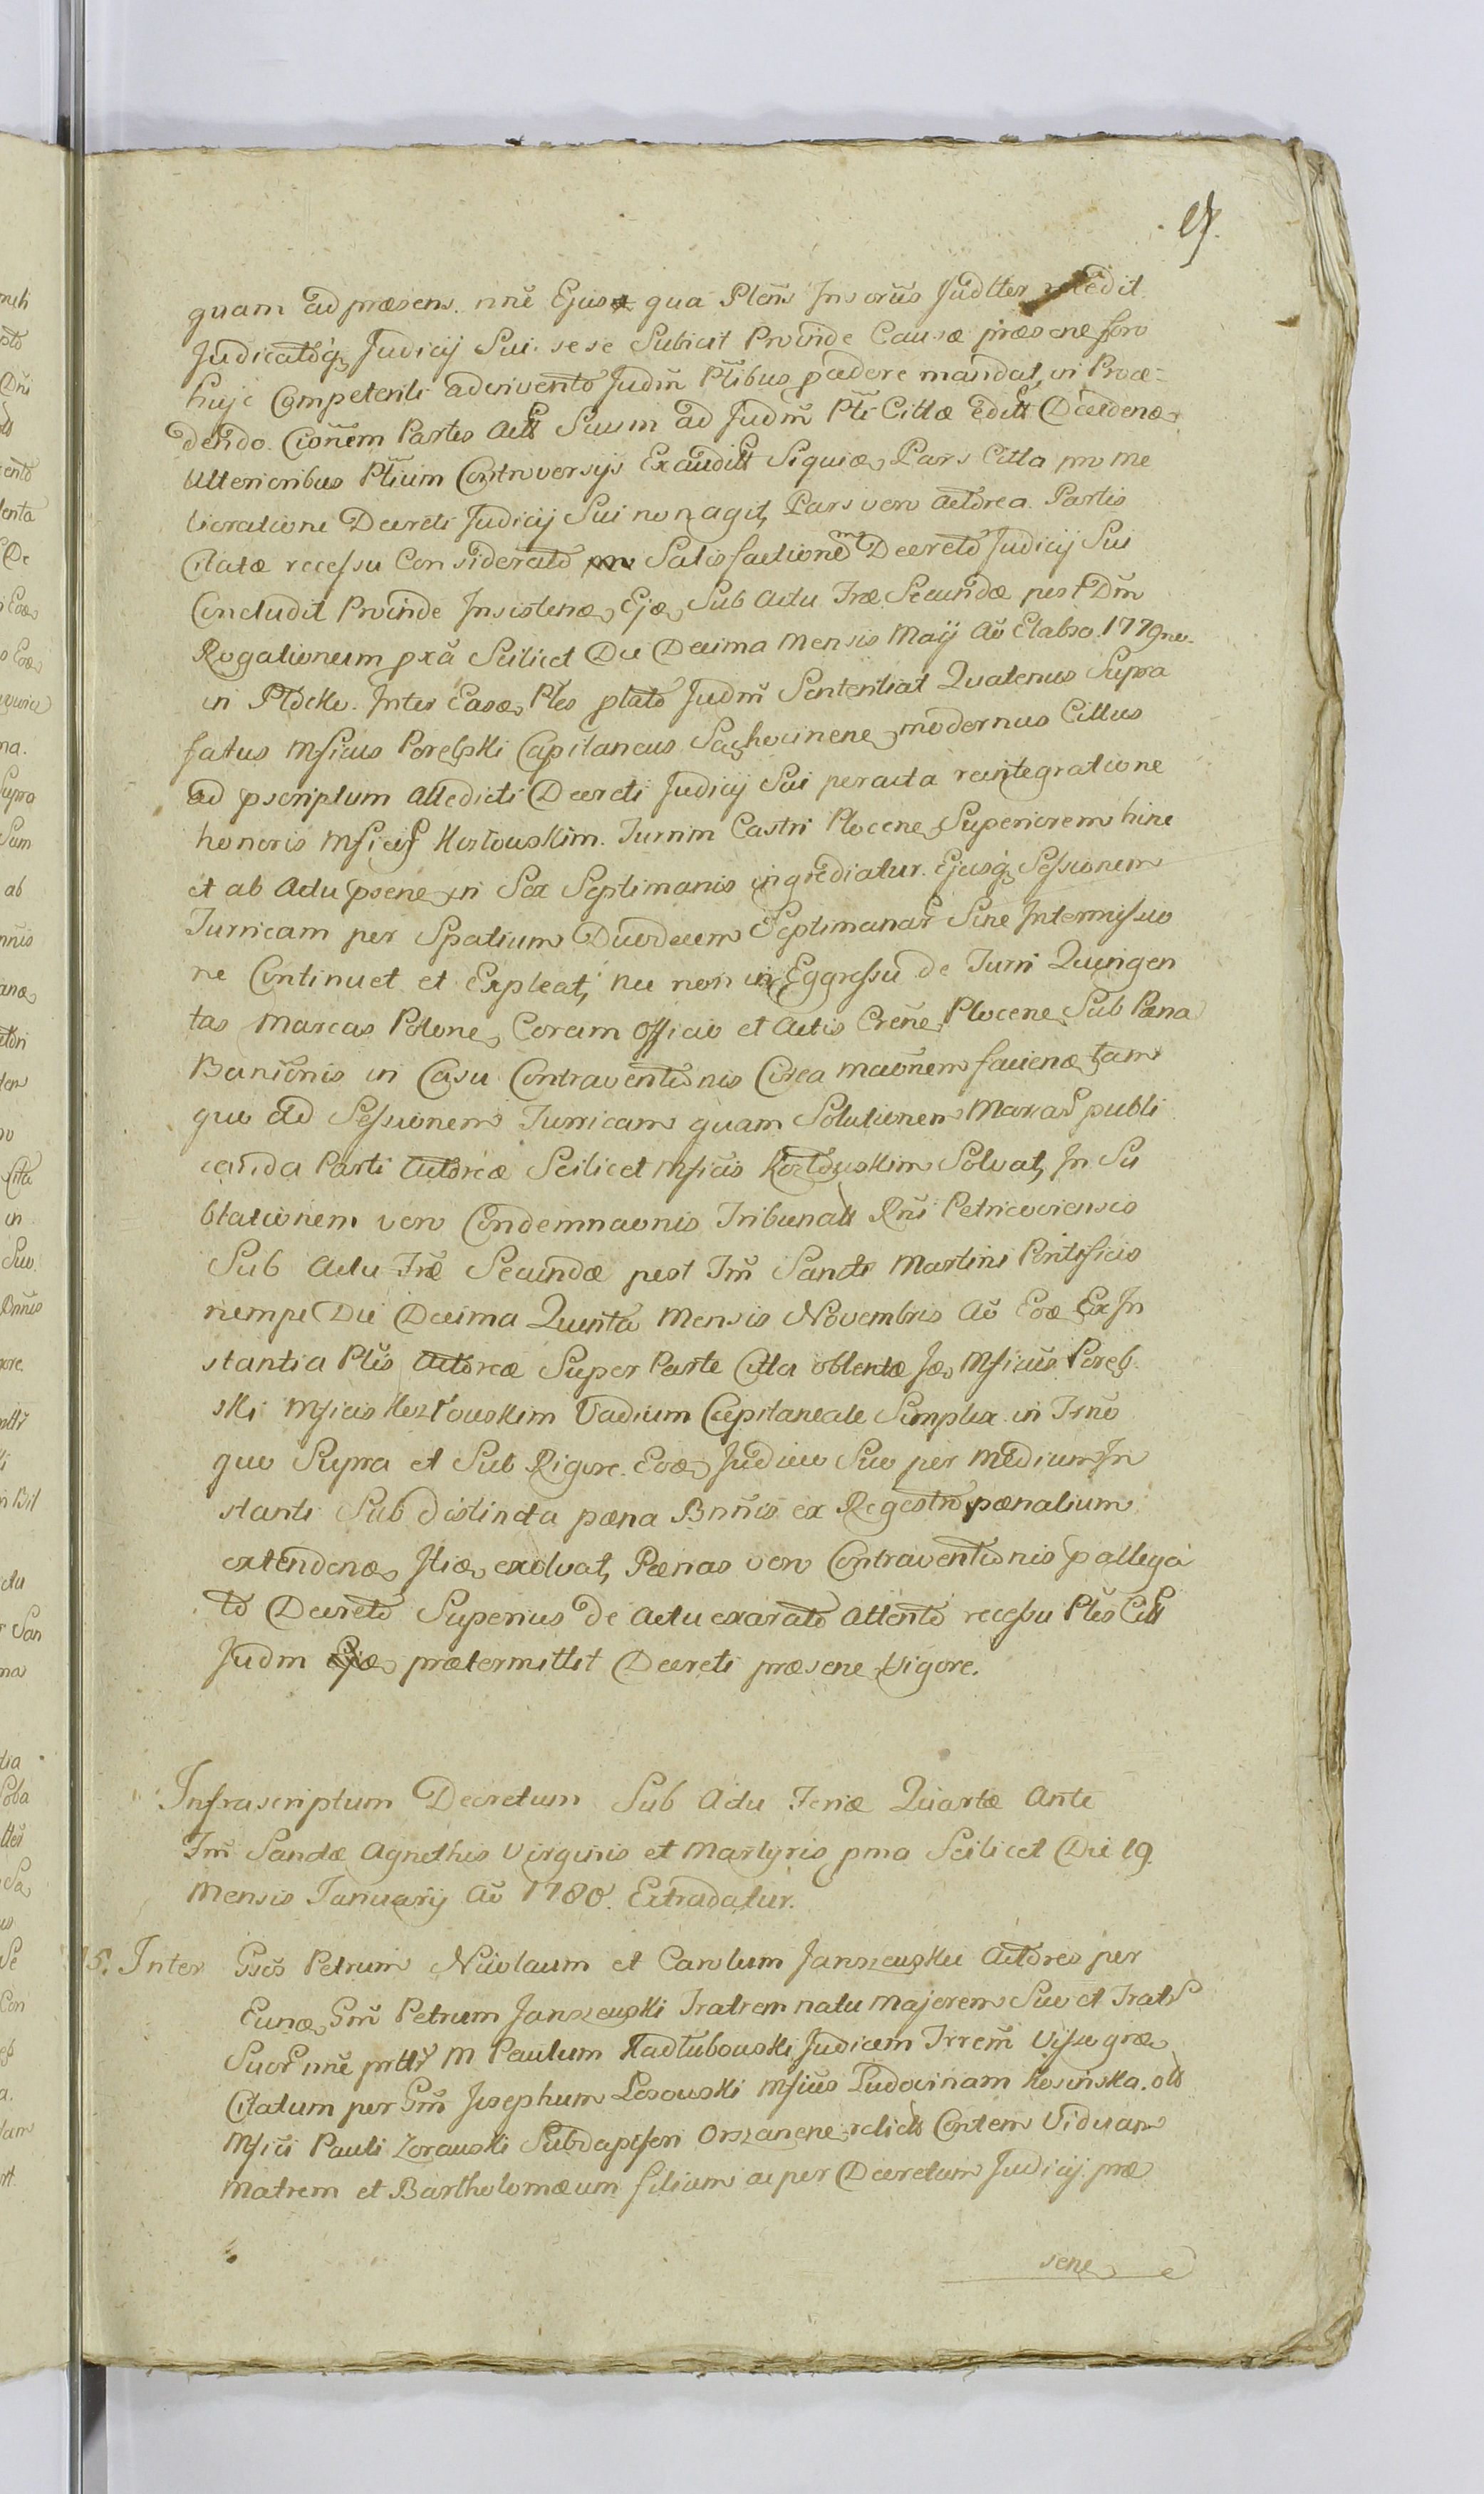 quam ad præsens nnẽ Ejus qua Pltẽns Insorũs Judtter
Judicatõq Judicij Sui se se Subicit Proinde Causæ præsene foro
hujc Competenti adinvento Judm̃ Ptibus pcedere mandat, in Proce-
dendo Cionẽm Partis Act Suum ad Judm̃ Ptĩ Cittæ edit Decedenæ
Ulterioribus Ptium Controversijs Exaudit Siquiæ Pars Citta pro me
lioratione Decreti Judicij Sui non agit, Pars vero actorea Partis
Citatæ recessu Considerato Satisfactionẽ Decreto Judicij Sui
Concludit Proinde Insistenæ Ejæ Sub Actu Fræ Secundæ post Dm̃
Rogationum pxã Scilicet Die Decima Mensis Maij Aõ Elabso 1779no
in Plocko Inter Easæ Ptes plato Judm̃ Sententiat Quatenus Supra
fatus Msicus Porębski Capitaneus Sochocinene modernus Cittus
ad pscriptum attedicti Decreti Judicij Sui peracta reintegratione
honoris Msicis Kozłouskim Turrim Castri Plocene Superiorem hinc
et ab Actu psene in Sex Septimanis ingrediatur Ejusq Sessionem
Turricam per Spatium Duodecem Septimanar Sine Intermissio
ne Continuet et Expleat, nec non in Eggressu de Turri Quingen
tas Marcas Polone Coram Officio et Actis Crẽne Plocene Sub Pæna
Baniõnis in Casu Contraventionis Circa maõnem facienæ tam
quo ad Sessionem Turricam quam Solutionem Marcar publi
canda Parti Actoreæ Scilicet Msicis Kozłouskim Solvat, In Su
blationem vero Condemnaõnis Tribunalt Rñi Petricoviensis
Sub Actu Fræ Secundæ post Fm̃ Sancti Martini Pontificis
nempe Die Decima Quinta Mensis Novembris Aõ Eoæ Ex In
stantia Ptis Actoreæ Super Parte Citta obtentæ Jæ Msicus Poręb
ski Msicis Kozłouskim Vadium Capitaneale Simplex in Frno
quo Supra et Sub Rigore Eoæ Judicio Suo per Medium In
stanti Sub distincta pæna Bnnis ex Regestro pænalium
extendenæ Jtiæ exolvat, Pænas vero Contraventionis p allega
to Decreto Superius de Actu exarato attento recessu Ptis Citt
Judm Ejæ prætermittit Decreti præsene Vigore.
Infrascriptum Decretum Sub Actu Feriæ Quartæ Ante
Fm̃ Sanctæ Agnethis Virginis et Martyris pma Scilicet Die 19
Mensis Januarij Aõ 1780. Extradatur.
5. Inter Gsõs Petrum Nicolaum et Carolum Janszewskie Actores per
Eunæ Gm̃ Petrum Janszewski Fratrem natu Majorem Suo et Fratr
Suor nnẽ prttr M Paulum Kadłubouski Judicem Frrem̃ Vyssogræ
Citatum per Gm̃ Josephum Losouski Msicũs Ludovinam Kosinska olt
Msici Pauli Zorauski Subdapiferi Orszanene relict Contem Viduam
Matrem et Bartholomæum filium ac per Decretum Judicij præ
sene